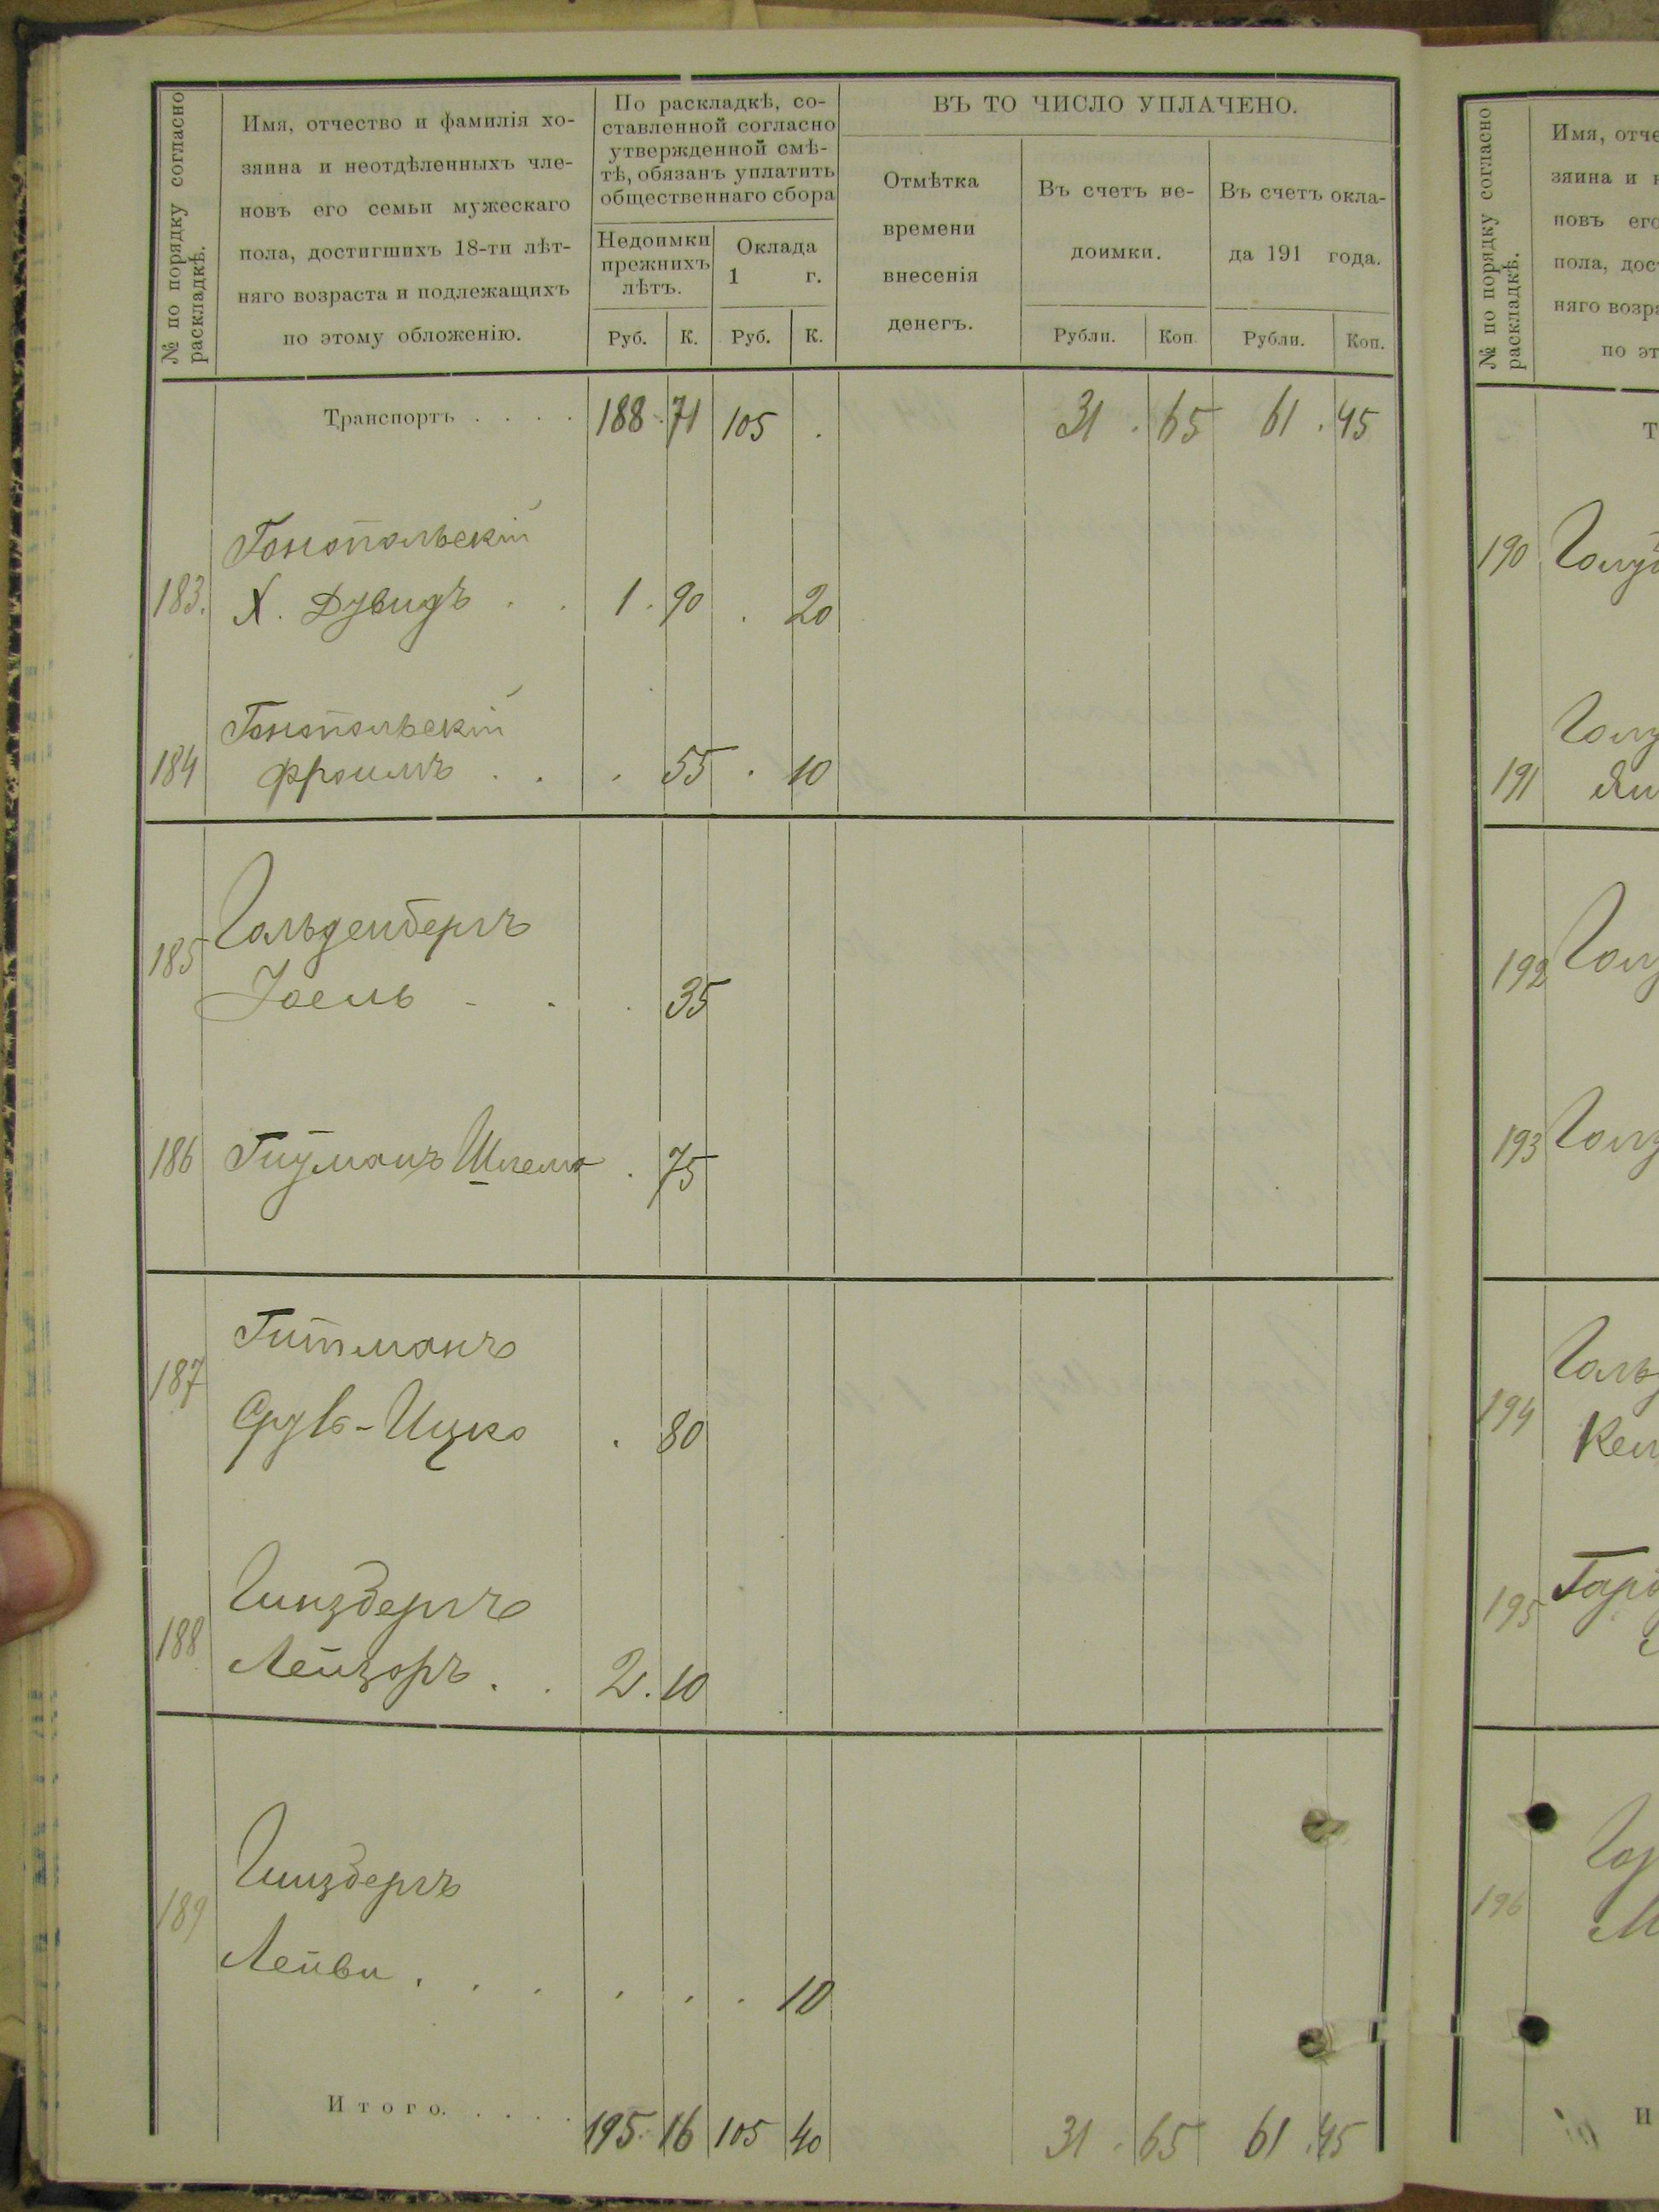 № по порядку согласно
раскладкѣ.
Имя, отчество и фамилія хо-
зяина и неотдѣленныхъ чле-
новъ его семьи мужескаго
пола, достигшихъ 18-ти лѣт-
няго возраста и подлежащихъ
по этому обложенію.
По раскладкѣ, со-
ставленной согласно
утвержденной смѣ-
тѣ, обязанъ уплатить
общественнаго сбора
Недоимки
прежнихъ
лѣтъ.
Оклада
1 г.
Руб. К. Руб. К.
ВЪ ТО ЧИСЛО УПЛАЧЕНО.
Отмѣтка
времени
внесенія
денегъ.
Въ счетъ не-
доимки.
Рубли. Коп.
Въ счетъ окла-
да 191 года.
Рубли. Коп.
Транспортъ . . . . 188 71 105 . 31 . 65 61 . 45
Гонопольскій
183. Х. Дувидъ . . 1 . 90 . 20
Гонопольскій
184 Фроимъ . . . 55 . 10
185 Гольденбергъ
Іоель - . . 35
186 Гитманъ Шлема . 75
187 Гитманъ
Сруль-Ицко . 80
188 Гинзбергъ
Лейзоръ . . 2 . 10
189 Гинзбергъ
Лейви . . . . . . 10
Итого. . . . . 195 16 105 40 31 . 65 61 . 45
№ по порядку согласно
раскладкѣ.
Имя, отче
зяина и н
новъ его
пола, дос
няго возра
по эт
Т
190
191
192
193
194
195
196
И